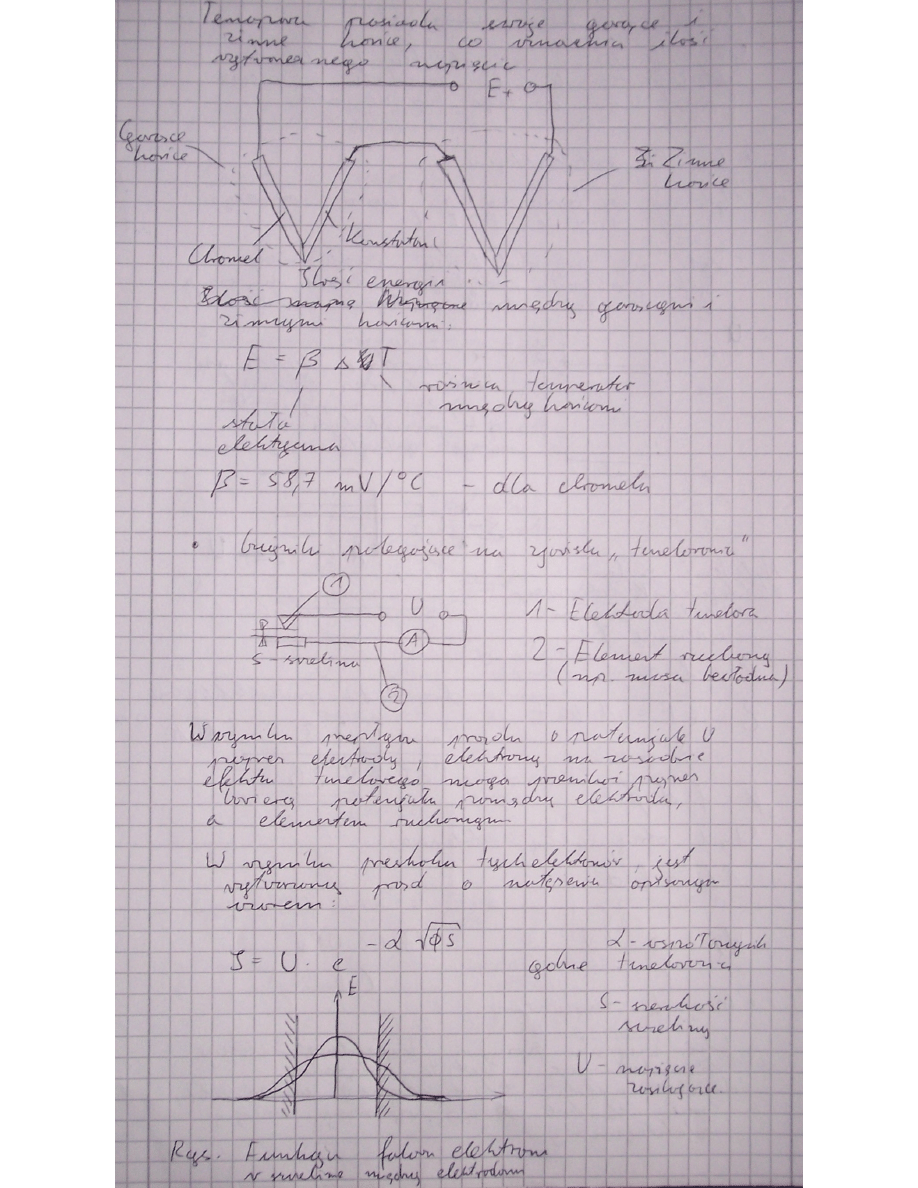 Termopara posiada swoje gorące i
zimne końce, co wzmacnia ilość
wytworzonego napięcia
E+
Gorące
końce
Zimne
końce
Chromel
Konstantan
Ilość energii
między gorącymi i
zimnymi końcami:
E = β Δ T
różnica temperatur
między końcami
stała
elektryczna
β = 58,7 mV/°C - dla chromelu
• Czujniki polegające na zjawisku „tunelowania"
1
U
1- Elektroda tunelowa
A
S - szczelina
2 - Element ruchomy
(np. masa bezwładna)
2
W wyniku przepływu prądu o potencjale U
przez elektrody, elektrony na zasadzie
efektu tunelowego mogą przenikać przez
barierę potencjału pomiędzy elektrodą,
a elementem ruchomym
W wyniku przeskoku tych elektronów, jest
wytworzony prąd o natężeniu opisanym
wzorem:
J = U · e -α √ϕS
gdzie
α - współczynnik
tunelowania
S - szerokość
szczeliny
E
U - napięcie
zasilające
Rys. Funkcja falowa elektronu
w szczelinie między elektrodami